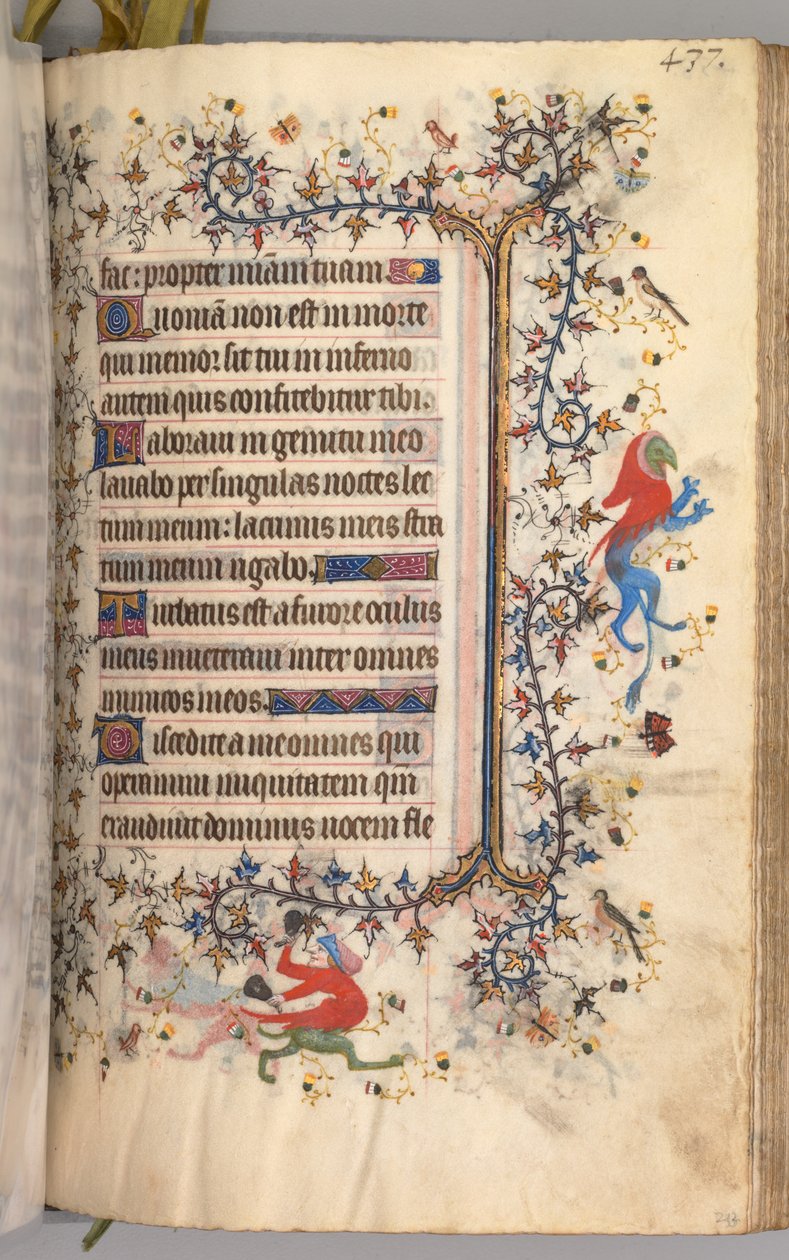 437.
fac: propter miãm tuam.
Quoniã non est in morte
qui memor sit tui in inferno
autem quis confitebitur tibi.
Laboraui in gemitu meo
lauabo per singulas noctes lec
tum meum: lacrimis meis stra
tum meum rigabo.
Turbatus est a furore oculus
meus inueteraui inter omnes
inimicos meos.
Discedite a me omnes qui
operamini iniquitatem qm̃
exaudiuit dominus uocem fle